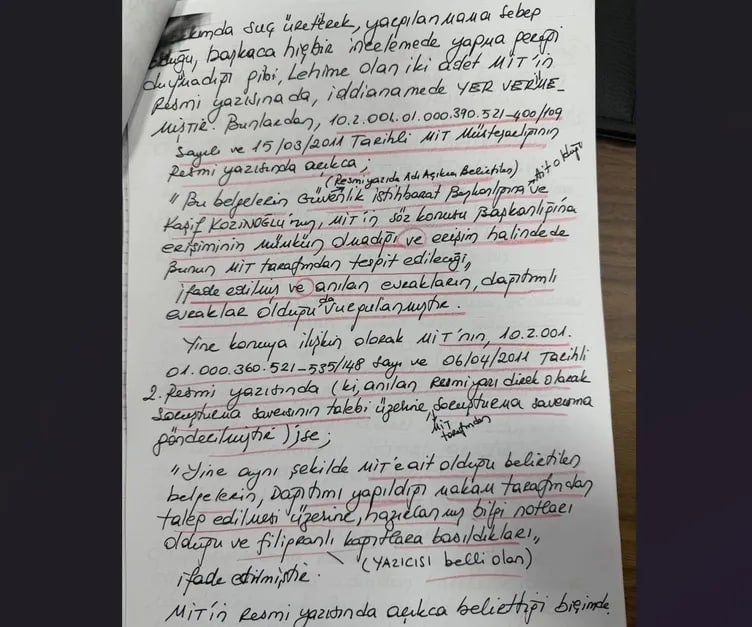 suç üreterek, yargılanmama sebep
olduğu, başkaca hiçbir incelemede yapma gereği
duymadığı gibi, Lehime olan iki adet MİT'in
Resmi yazısına da, iddianamede YER VERME-
MİŞTİR. Bunlardan, 10.2.001.01.000.390.521-400/109
Sayılı ve 15/03/2011 Tarihli MİT Müsteşarlığının
Resmi yazısında açıkca;
(Resmi yazıda Adı Açıkca Belirtilen) Ait olduğu
"Bu belgelerin Güvenlik istihbarat Başkanlığına ve
Kaşif KOZİNOĞLU'nun, MİT'in söz konusu Başkanlığına
erişiminin mümkün olmadığı ve erişim halinde de
Bunun MİT tarafından tespit edileceği,,
ifade edilmiş ve anılan evrakların, dağıtımlı
evraklar olduğu da vurgulanmıştır.
Yine konuya ilişkin olarak MİT'nin, 10.2.001.
01.000.360.521-535/148 Sayı ve 06/04/2011 Tarihli
2. Resmi yazısında (ki, anılan Resmi yazı direk olarak
Soruşturma savcısının talebi üzerine, soruşturma savcısına
MİT tarafından
gönderilmiştir) ise;
"Yine aynı şekilde MİT'e ait olduğu belirtilen
belgelerin, Dağıtımı yapıldığı makam tarafından
talep edilmesi üzerine, hazırlanmış bilgi notları
olduğu ve filigranlı kağıtlara basıldıkları,,
(YAZICISI belli olan)
ifade edilmiştir.
MİT'in Resmi yazısında açıkca belirttiği biçimde